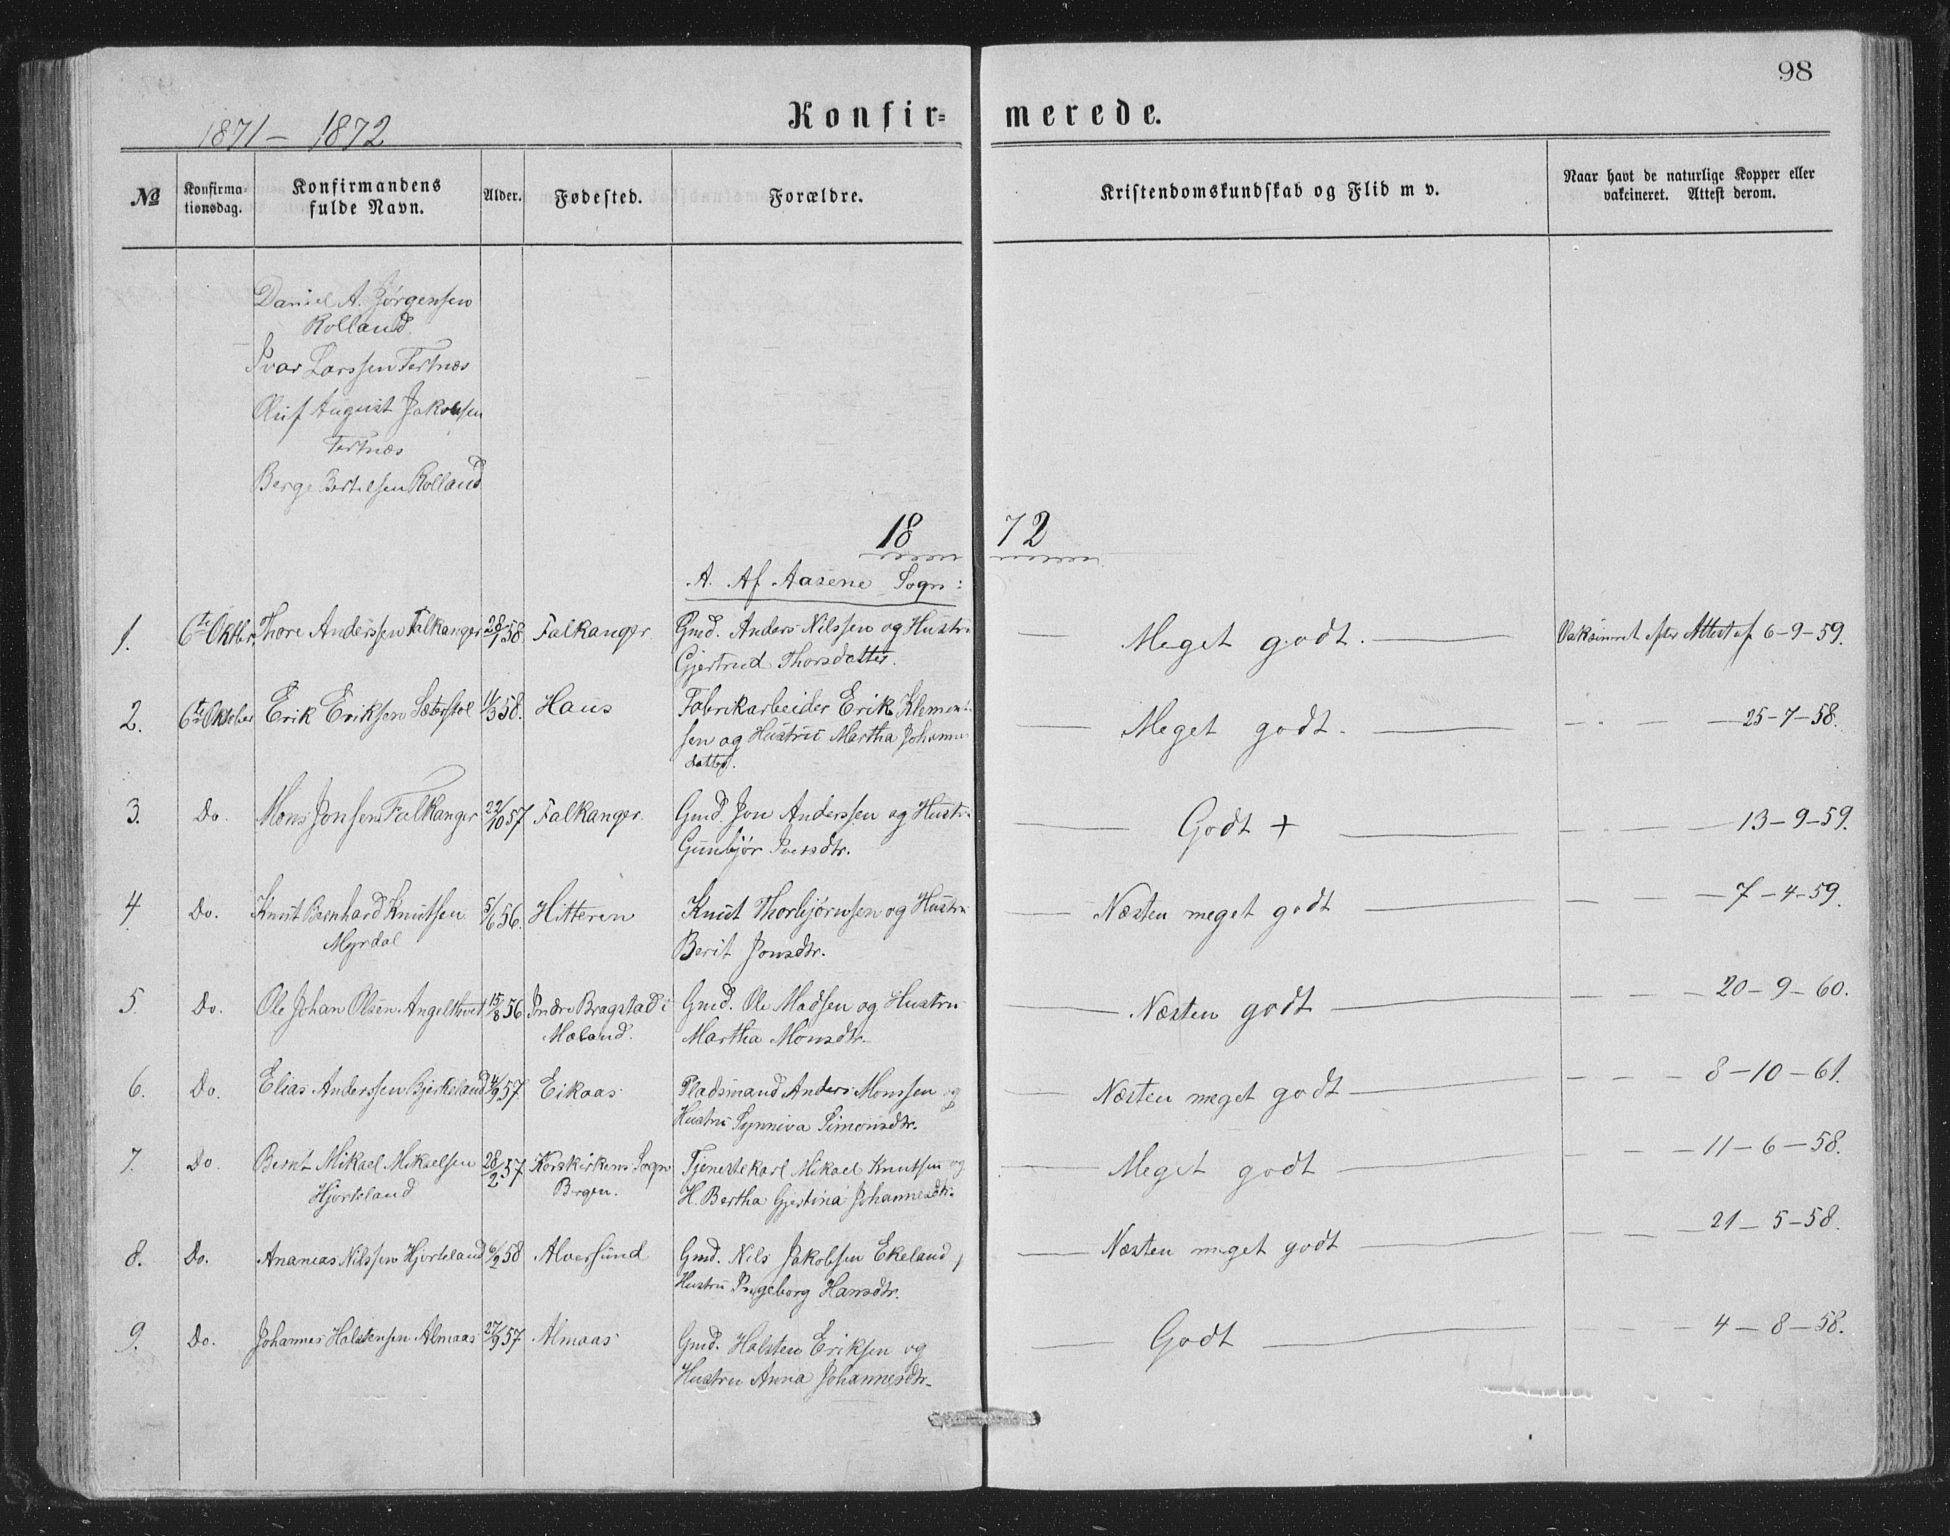 98
1871 – 1872
Konfir= merede.
№
Konfirma-
tionsdag.
Konfirmandens
fulde Navn.
Alder.
Fødested.
Forældre.
Kristendomskundskab og Flid m v.
Naar havt de naturlige Kopper eller
vakcineret. Attest derom.
Daniel A. Jørgensen
Rolland.
Ivar Larssen Tertnæs
Oluf August Jakobsen
Tertnæs
Berge Bertelsen Rolland
18 72
A. Af Aasene Sogn:
1. 6te Oktbr. Thore Anderssen Falkanger 28/1 58. Falkanger Gmd. Anders Nilssen og Hustru — Meget godt. — Vaksineret efter Attest af 6-9-59.
Gjertrud Thorsdatter.
2. 6te Oktober Erik Eriksen Sæterstøl 11/3 58. Haus Fabrikarbeider Erik Klement- — Meget godt. — – – — 25-7-58.
sen og Hustru Martha Johannes
datter.
3. Do. Mons Jonsen Falkanger 22/10 57 Falkanger. Gmd. Jon Anderssen og Hustru — Godt + — – – — 13-9-59.
Gunbjør Iversdtr.
4. Do. Knut Bernhard Knutsen 5/6 56. Hitteren Knut Thorbjørnsen og Hustru — Næsten meget godt — – – — 7-4-59.
Myrdal Berit Jonsdtr.
5. Do. Ole Johan Olsen Angeltveit 15/8 56 Indre Bragstad i Gmd. Ole Madsen og Hustru — Næsten godt — – – — 20-9-60.
Mæland. Martha Monsdtr.
6. Do. Elias Anderssen Bjørkeland 4/9 57 Eikaas Pladsmand Anders Monssen og — Næsten meget godt — – – — 8-10-61.
Hustru Synniva Simonsdtr.
7. Do. Bernt Mikael Mikaelsen 28/2 57 Korskirkens Sogn Tjenestekarl Mikael Knutsen og — Meget godt — – – — 11-6-58.
Hjorteland Bergen. H. Bertha Gjertina Johannesdtr.
8. Do. Ananias Nilssen Hjorteland 6/2 58 Alversund Gmd. Nils Jakobsen Ekeland, — Næsten meget godt — – – — 21-5-58.
Hustru Ingeborg Hansdtr.
9. Do. Johannes Halstensen Almaas 27/9 57 Almaas Gmd. Halsten Eriksen og — Godt — – – — 4-8-58.
Hustru Anna Johannesdtr.